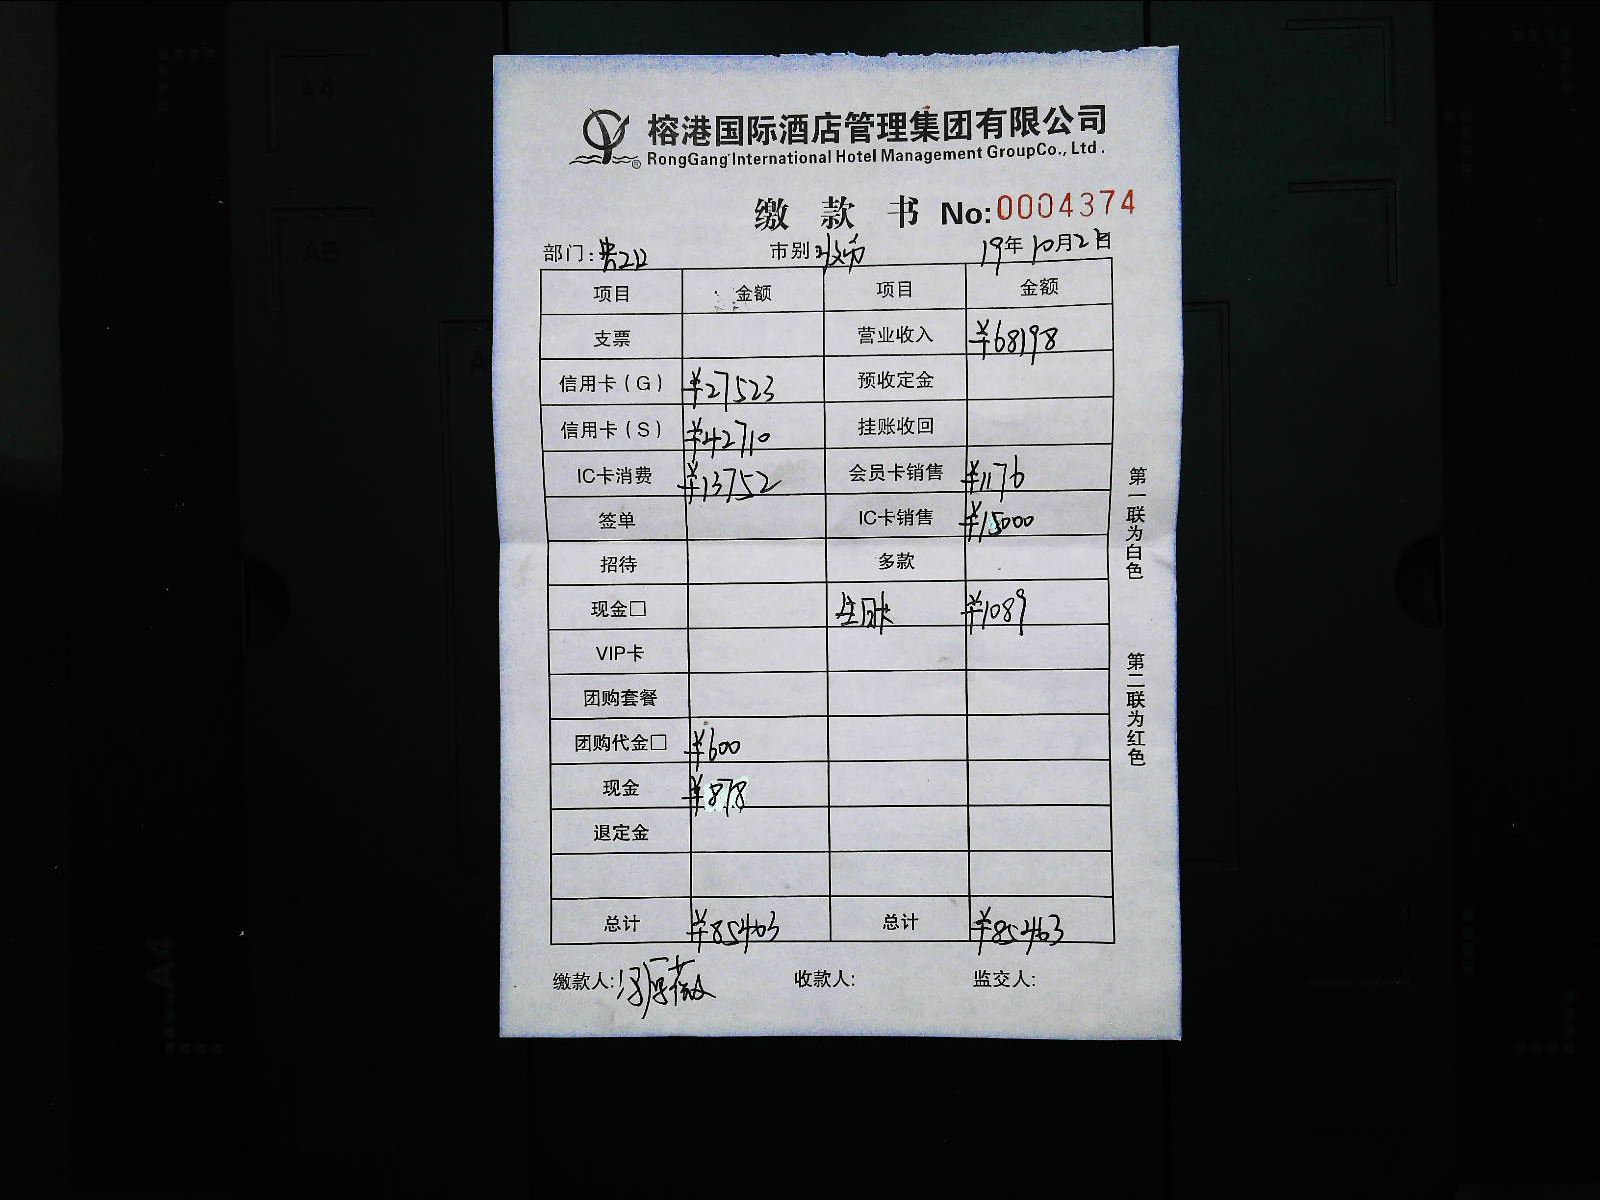 榕港国际酒店管理集团有限公司
RongGang International Hotel Management GroupCo., Ltd.
缴 款 书 No:0004374
部门: 市别 19年10月2日
项目 金额 项目 金额
支票 营业收入 ¥68198
信用卡(G) ¥27523 预收定金
信用卡(S) ¥42710 挂账收回
IC卡消费 ¥13752 会员卡销售 ¥1176
签单 IC卡销售 ¥15000
招待 多款
现金□ ¥1089
VIP卡
团购套餐
团购代金□ ¥600
现金 ¥878
退定金
总计 ¥85463 总计 ¥85463
缴款人: 收款人: 监交人:
第一联为白色
第二联为红色